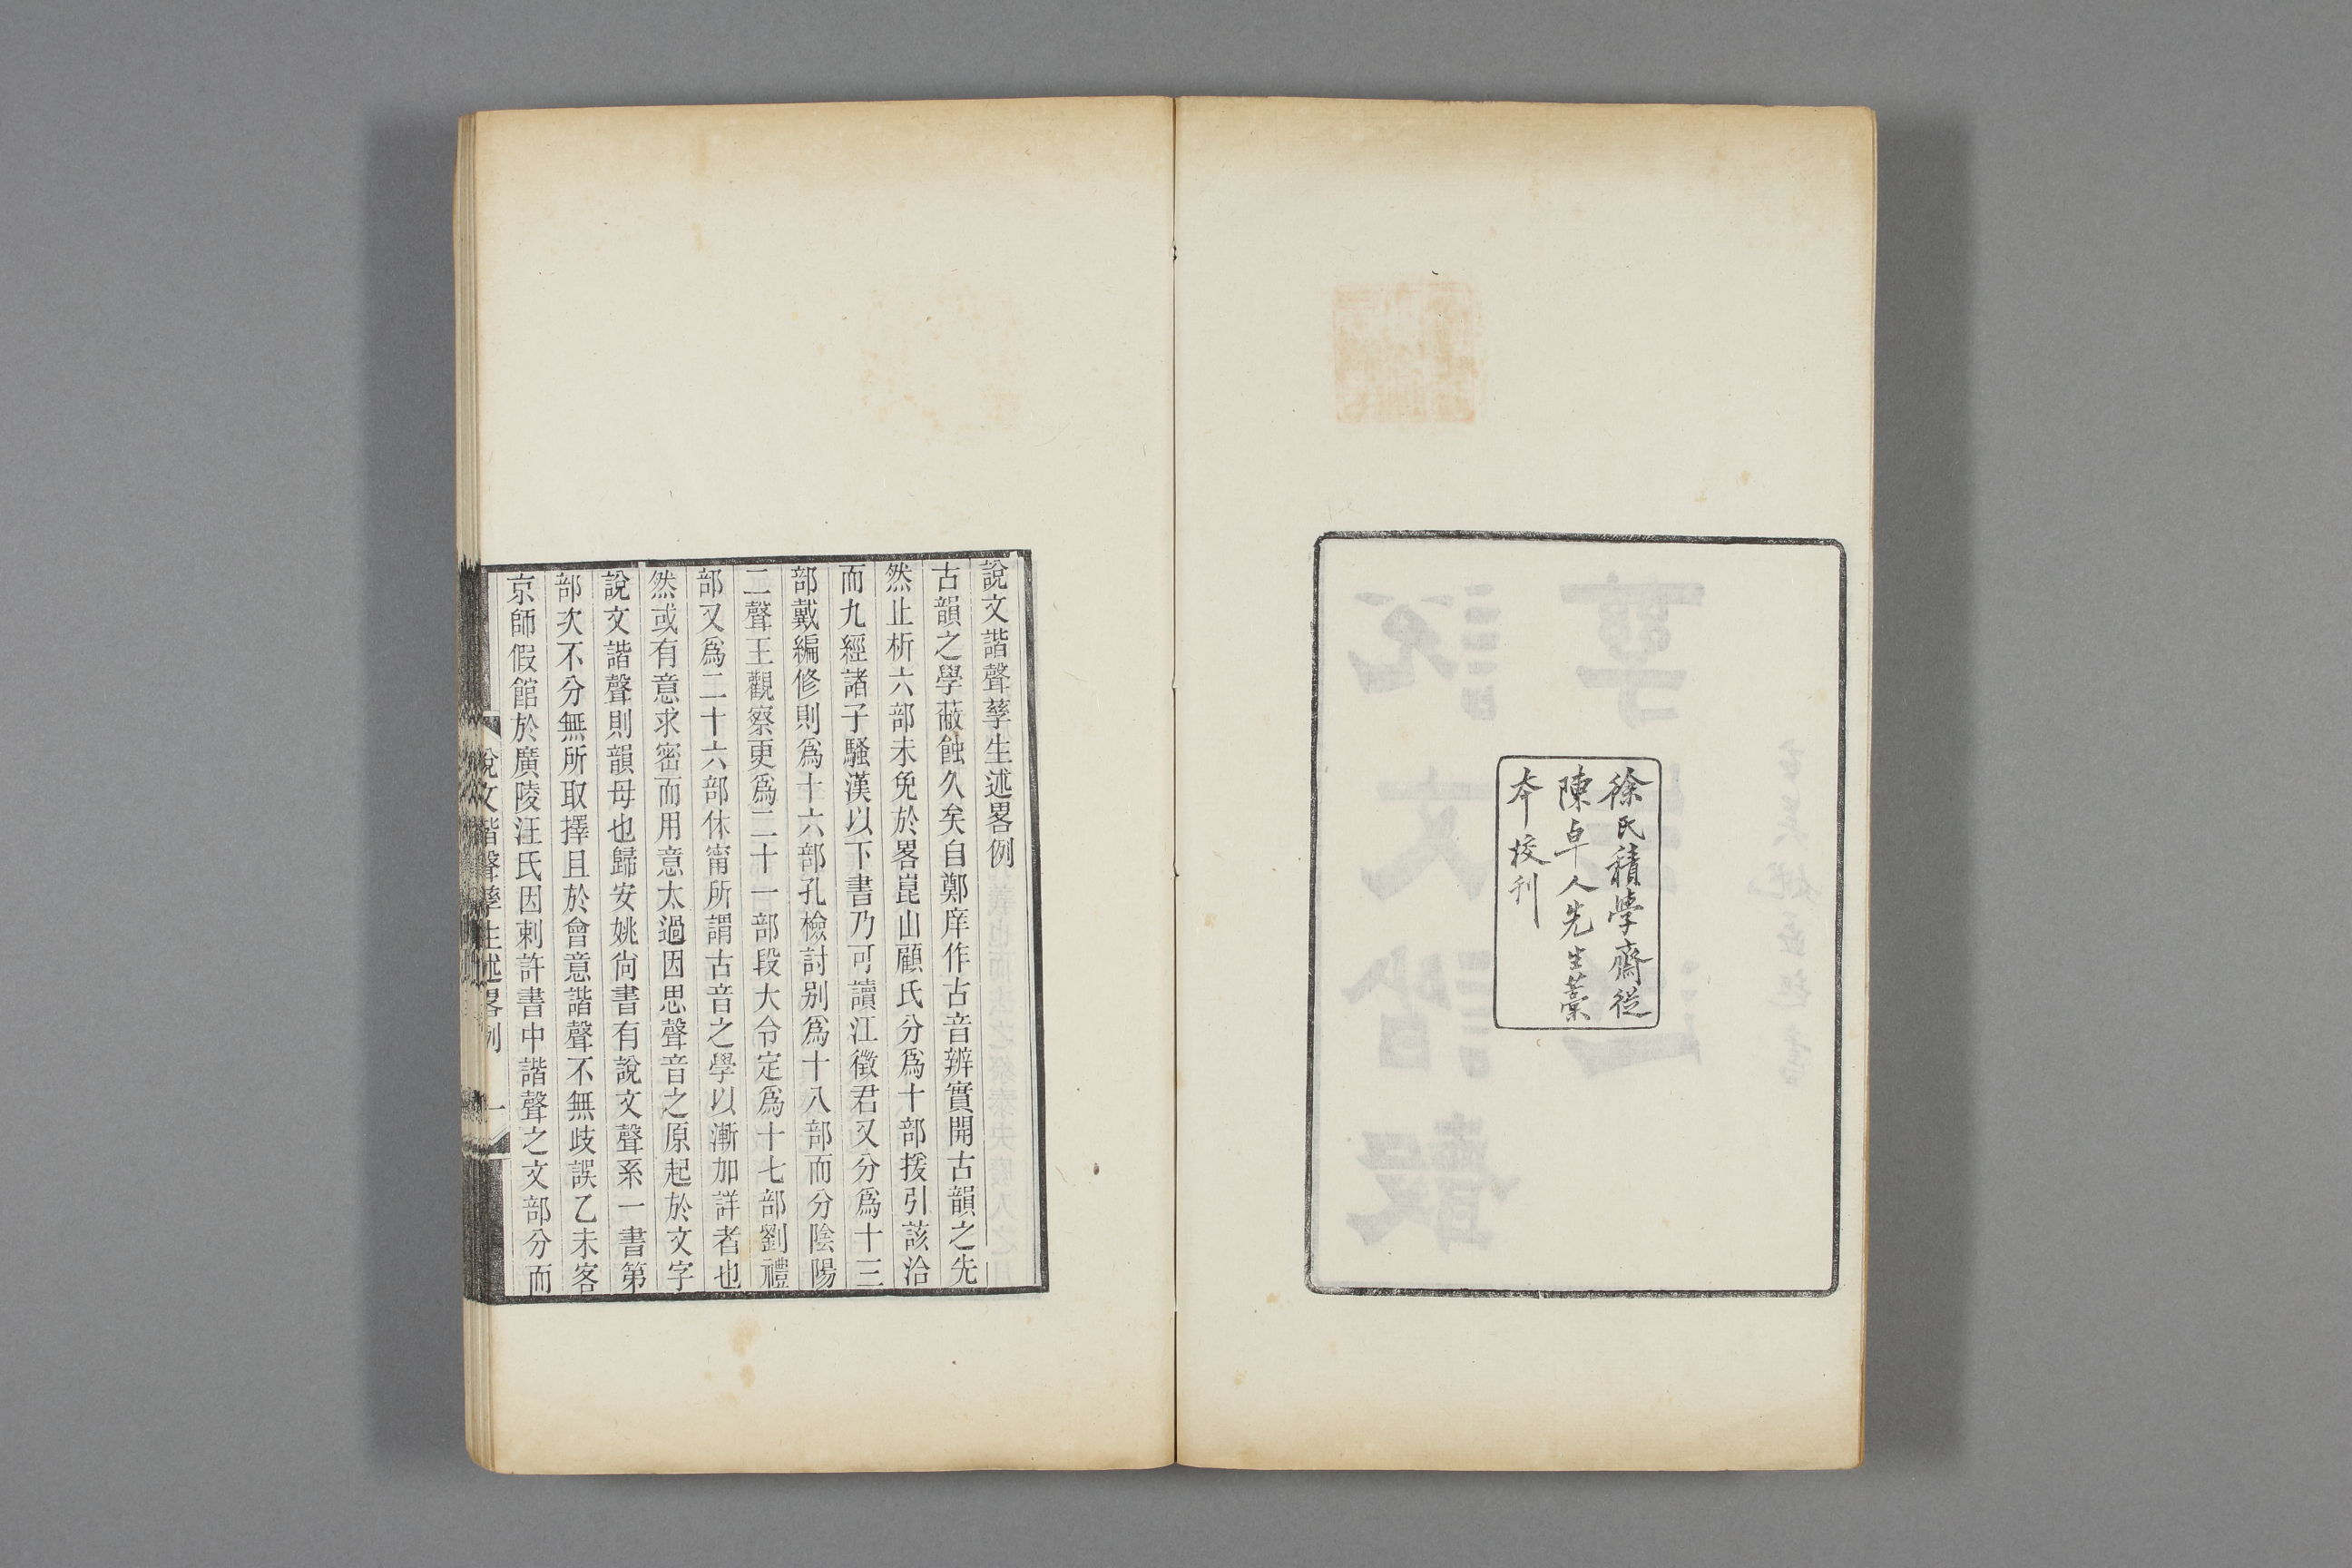 徐氏積學齋從
陳卓人先生藁
本校刊
說文諧聲孳生述畧例
古韻之學蔽蝕久矣自鄭庠作古音辨實開古韻之先
然止析六部未免於畧崑山顧氏分爲十部援引該洽
而九經諸子騷漢以下書乃可讀江徵君又分爲十三
部戴編修則爲十六部孔檢討别爲十八部而分陰陽
二聲王觀察更爲二十一部段大令定爲十七部劉禮
部又爲二十六部休甯所謂古音之學以漸加詳者也
然或有意求密而用意太過因思聲音之原起於文字
說文諧聲則韻母也歸安姚尙書有說文聲系一書第
部次不分無所取擇且於會意諧聲不無歧誤乙未客
京師假館於廣陵汪氏因刺許書中諧聲之文部分而
說文諧聲孳生述畧例 一